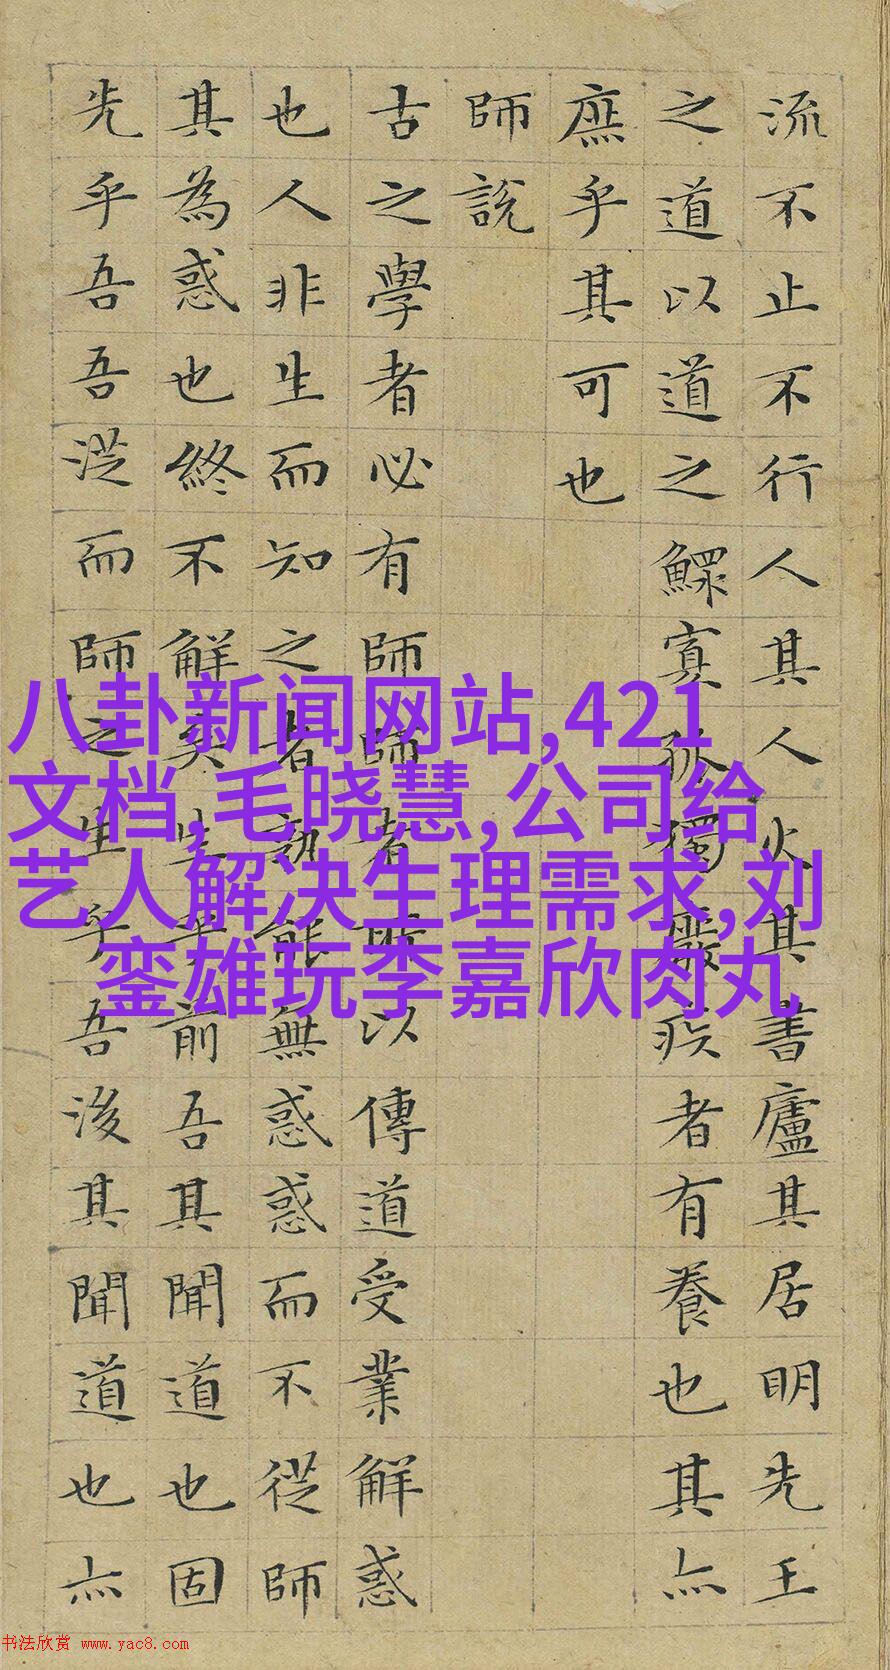 流不止不行人其人火其書廬其居明先王
之道以道之鰥寡孤獨廢疾者有養也其亦
庶乎其可也
師說
古之學者必有師師者所以傳道受業解惑
也人非生而知之者孰能無惑惑而不從師
其為惑也終不解矣生乎前吾其聞道也固
先乎吾吾從而師之生乎吾後其聞道也亦
八卦新闻网站,421
文档,毛晓慧,公司给
艺人解决生理需求,刘
銮雄玩李嘉欣肉丸
书法欣赏 www.yac8.com